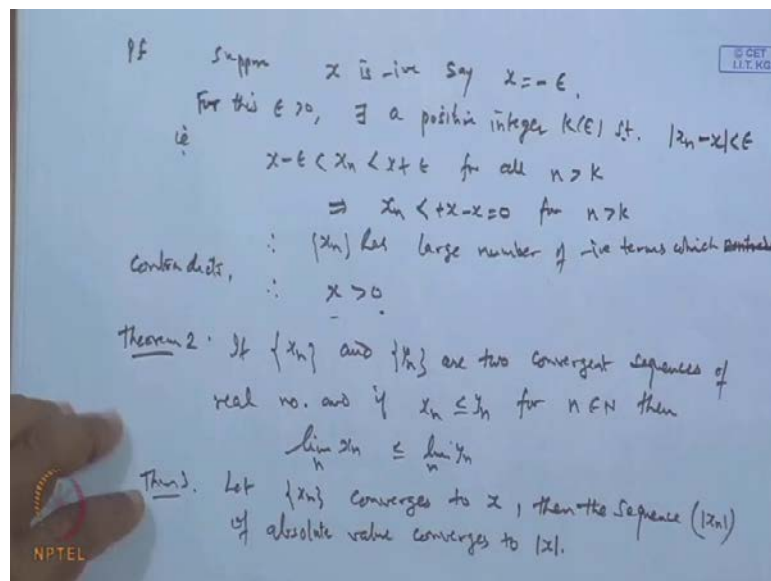 Pf Suppose x is -ive say x = - ϵ.
© CET
I.I.T. KG
For this ϵ > 0, ∃ a positive integer K(ϵ) s.t. |xn - x| < ϵ
ie x - ϵ < xn < x + ϵ for all n > K
⇒ xn < +x - x = 0 for n > K
∴ {xn} has large number of -ive terms which
Contradicts,
∴ x > 0.
Theorem 2. If {xn} and {yn} are two convergent sequences of
real no. and if xn ≤ yn for n ∈ N then
lim n xn ≤ lim n yn
Thm 3. Let {xn} converges to x, then the sequence (|xn|)
of absolute value converges to |x|.
NPTEL